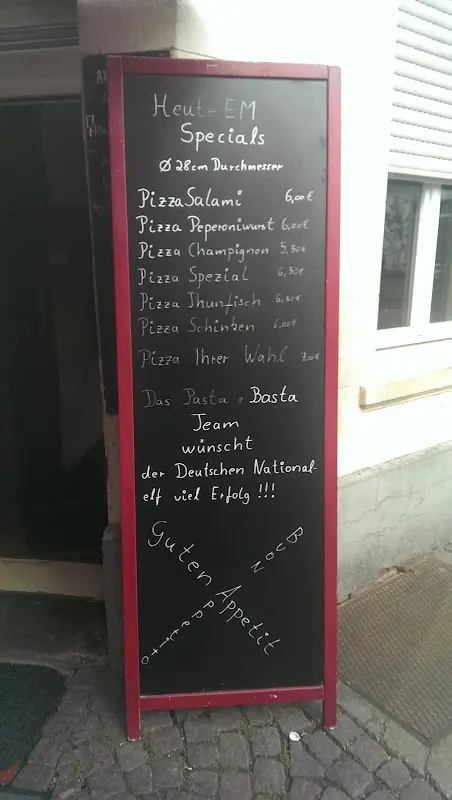 Heute EM
Specials
Ø 28cm Durchmesser
Pizza Salami 6,00€
Pizza Peperoniwurst 6,00€
Pizza Champignon 5,50€
Pizza Spezial 6,50€
Pizza Thunfisch 6,50€
Pizza Schinken 6,00€
Pizza Ihrer Wahl 7,00€
Das Pasta e Basta
Team
wünscht
der Deutschen National-
elf viel Erfolg !!!
Guten Appetit
Buon Appetito